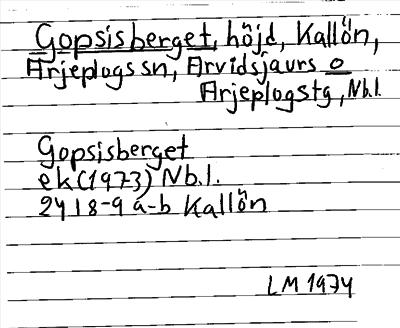 Gopsisberget, höjd, Kallön,
Arjeplogs sn, Arvidsjaurs o
Arjeplogs tg, Nb.l.
Gopsisberget
ek (1973) Nb.l.
24 I 8-9 a-b Kallön
LM 1974